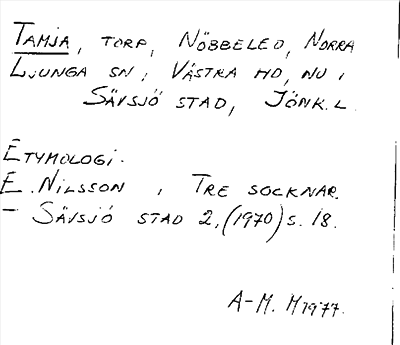 TAMJA, TORP, NÖBBELED, NORRA
LJUNGA SN, VÄSTRA HD, NU I
SÄVSJÖ STAD, JÖNK. L.
ETYMOLOGI.
E. NILSSON, TRE SOCKNAR.
– SÄVSJÖ STAD 2, (1970) S. 18.
A-M. H 1977.